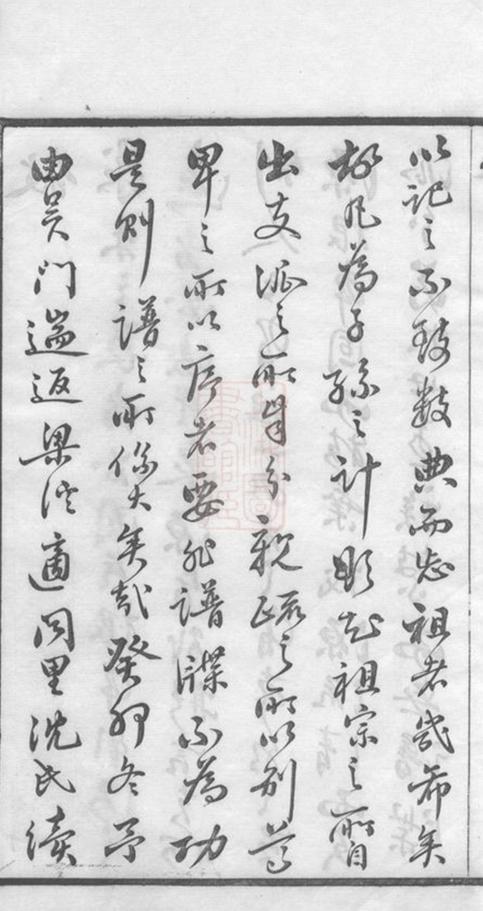 以記之不致數典而忘祖者幾希矣
故凡為子孫之計祖宗之所自
出支派之所由分親疏之所以別尊
卑之所以序者要非譜牒不為功
是則譜之所係大矣哉癸卯冬予
由吳門遄返梁溪適同里沈氏續